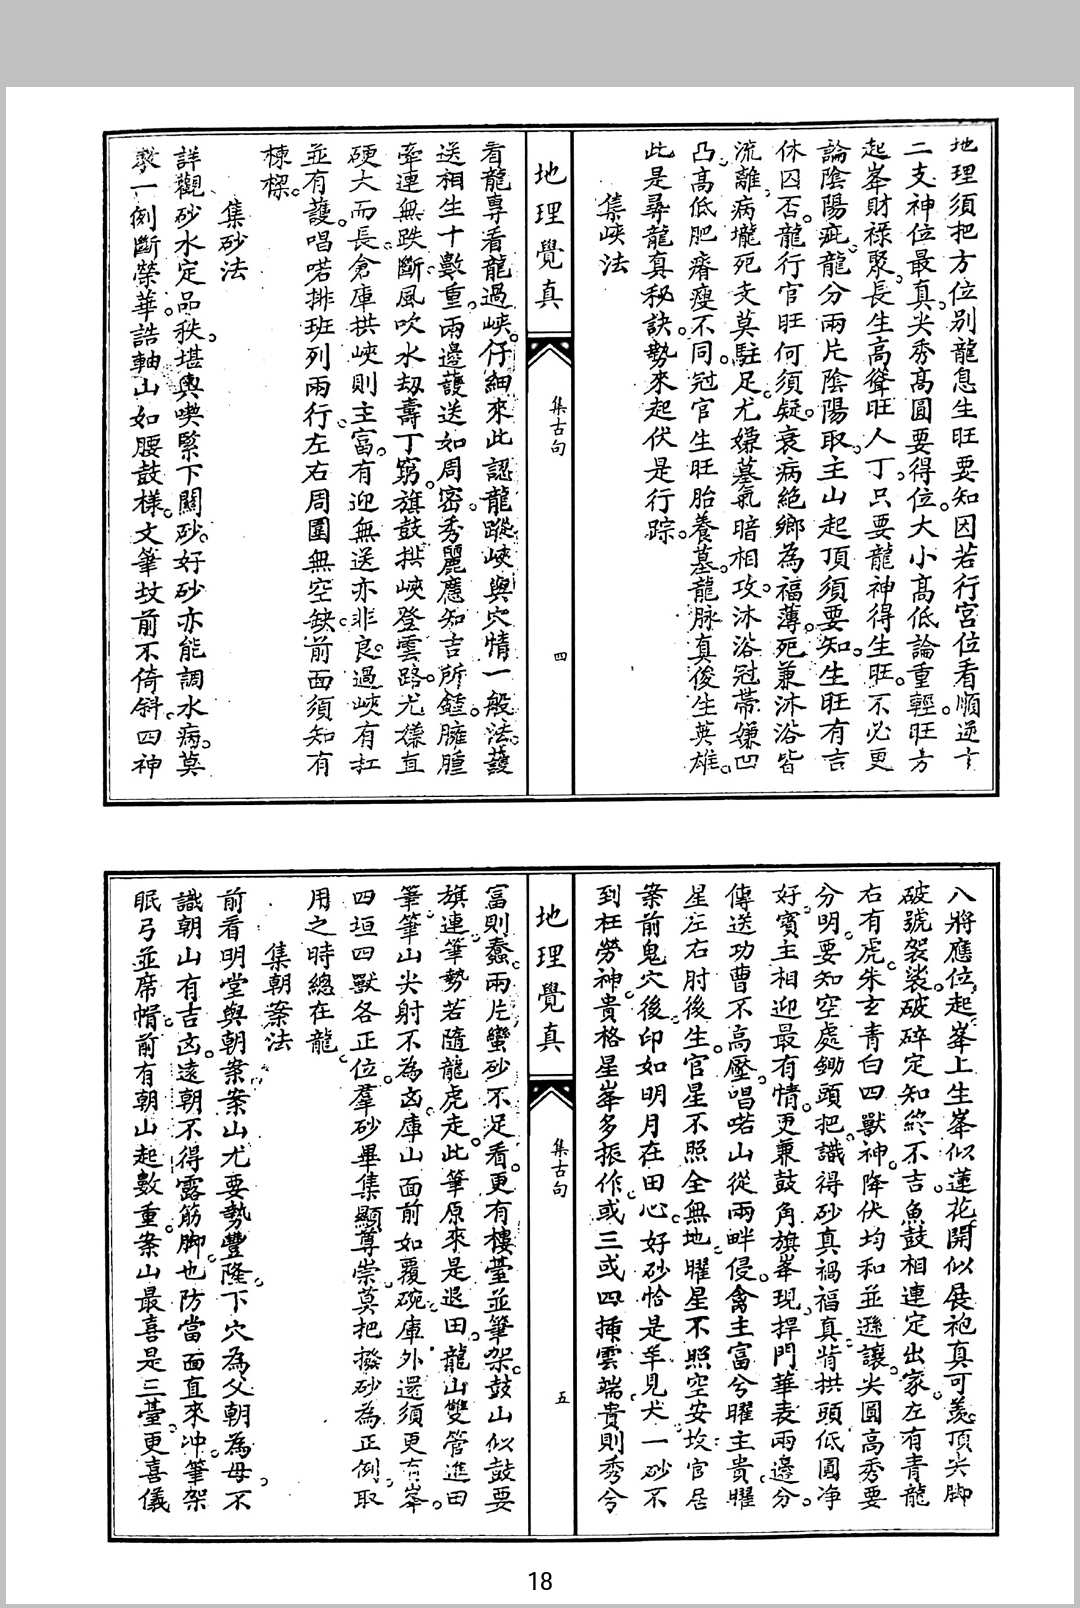 地理須把方位别龍息生旺要知因若行宮位看順逆十
二支神位最真尖秀高圓要得位大小高低論重輕旺方
起峯財祿聚長生高聳旺人丁只要龍神得生旺不必更
論陰陽疵龍分兩片陰陽取主山起頂須要知生旺有吉
休囚否龍行官旺何須疑衰病絶鄉為福薄死兼沐浴皆
流離病壠死支莫駐足尤嫌墓氣暗相攻沐浴冠帶嫌凹
凸高低肥瘠瘦不同冠官生旺胎養墓龍脉真俊生英雄
此是尋龍真秘訣勢來起伏是行踪
集峽法
地理覺真
集古句
四
看龍專看龍過峽仔細來此認龍蹤峽與穴情一般法護
送相生十數重兩邊護送如周密秀麗應知吉所鍾臃腫
牽連無跌斷風吹水刼壽丁窮旗鼓拱峽登雲路尤嫌直
硬大而長倉庫拱峽則主富有迎無送亦非良過峽有扛
並有護唱喏排班列兩行左右周圍無空缺前面須知有
棟樑
集砂法
詳觀砂水定品秩堪輿喫緊下關砂好砂亦能調水病莫
將一例斷榮華誥軸山如腰鼓樣文筆坟前不倚斜四神
八將應位起峯上生峯似蓮花開似展袍真可羨頂尖脚
破號袈裟破碎定知終不吉魚鼓相連定出家左有青龍
右有虎朱玄青白四獸神降伏均和並遜讓尖圓高秀要
分明要知空處鋤頭把識得砂真禍福真背拱頭低圓净
好賓主相迎最有情更兼鼓角旗峯現捍門華表兩邊分
傳送功曹不高壓唱喏山從兩畔侵禽主富兮曜主貴曜
星左右肘後生官星不照全無地曜星不照空安坟官居
案前鬼穴後印如明月在田心好砂恰是羊見犬一砂不
到枉勞神貴格星峯多振作或三或四插雲端貴則秀兮
地理覺真
集古句
五
富則蠢兩片蠻砂不足看更有樓臺並筆架鼓山似鼓要
旗連筆勢若隨龍虎走此筆原來是退田龍山雙管進田
筆筆山尖射不為凶庫山面前如覆碗庫外還須更有峯
四垣四獸各正位羣砂畢集顯尊崇莫把撥砂為正例取
用之時總在龍
集朝案法
前看明堂與朝案案山尤要勢豐隆下穴為父朝為母不
識朝山有吉凶遠朝不得露筋脚也防當面直來冲筆架
眠弓並席帽前有朝山起數重案山最喜是三臺更喜儀
18